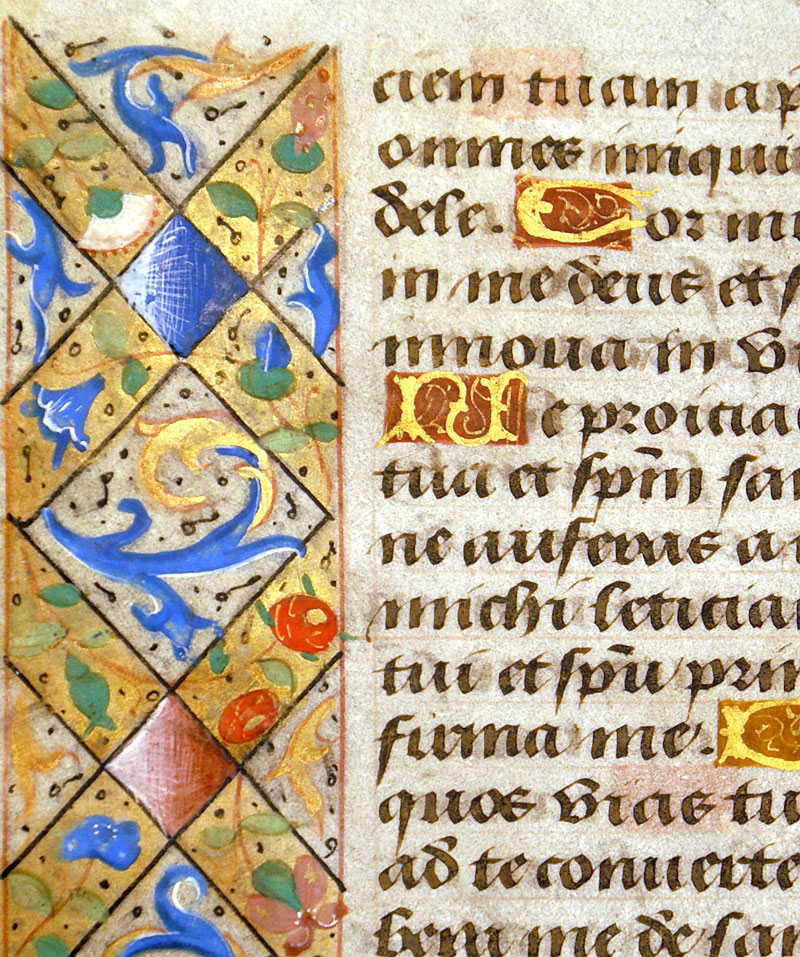 ciem tuam a p
omnes iniqui
dele. Cor mu
in me deus et s
innoua in vi
Ne proicia
tua et sp̄m san
ne auferas a
michi leticia
tui et sp̄u prin
firma me. D
quos vias tu
ad te conuerte
bera me de san